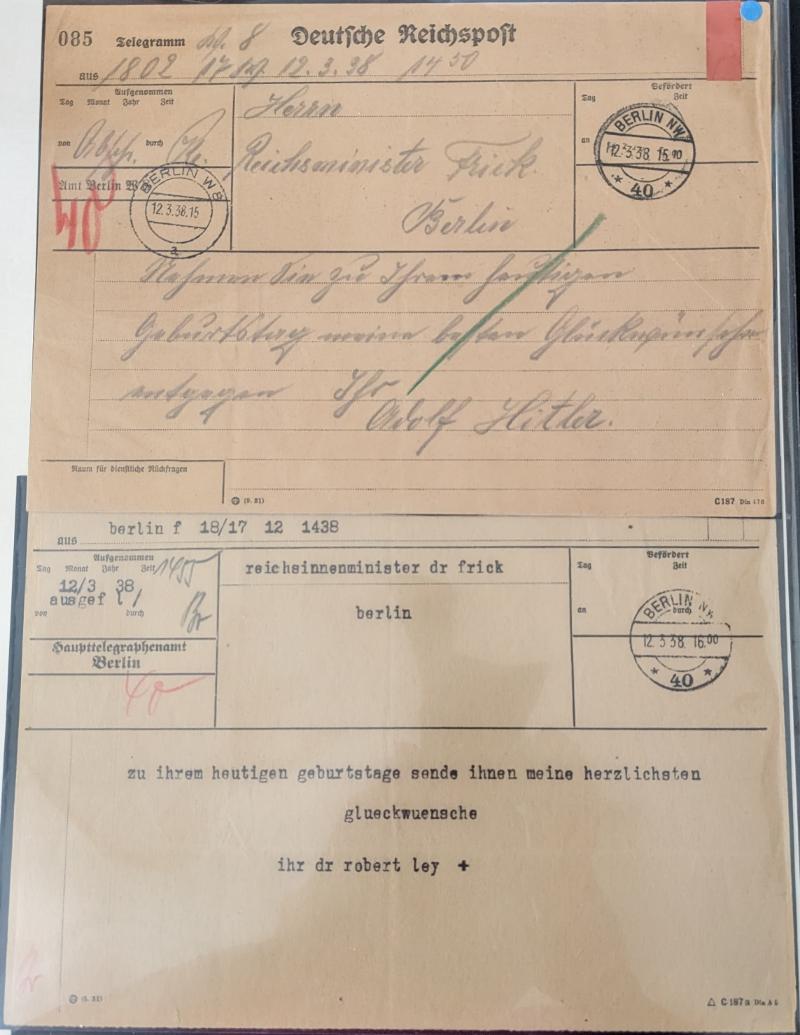 085 Telegramm W. 8 Deutsche Reichspost
aus 1802 17 W. 12.3.38 14 50
Aufgenommen
Tag Monat Jahr Zeit
von durch
Amt Berlin W
40
BERLIN W 8
12.3.38.15
a
Herrn
Reichsminister Frick.
Berlin
Befördert
Tag Zeit
an
BERLIN NW
12.3.38 15
* 40 *
Nehmen Sie zu Ihrem heutigen
Geburtstag meine besten Glückwünsche
entgegen Ihr
Adolf Hitler.
Raum für dienstliche Rückfragen
C187 Din 476
aus berlin f 18/17 12 1438
Aufgenommen
Tag Monat Jahr Zeit 1455
12/3 38
ausgef l /
von durch Br
Haupttelegraphenamt
Berlin
40
reichsinnenminister dr frick
berlin
Befördert
Tag Zeit
an durch
BERLIN NW
12.3.38.16.00
* 40 *
zu ihrem heutigen geburtstage sende ihnen meine herzlichsten
glueckwuensche
ihr dr robert ley +
C187a Din A5